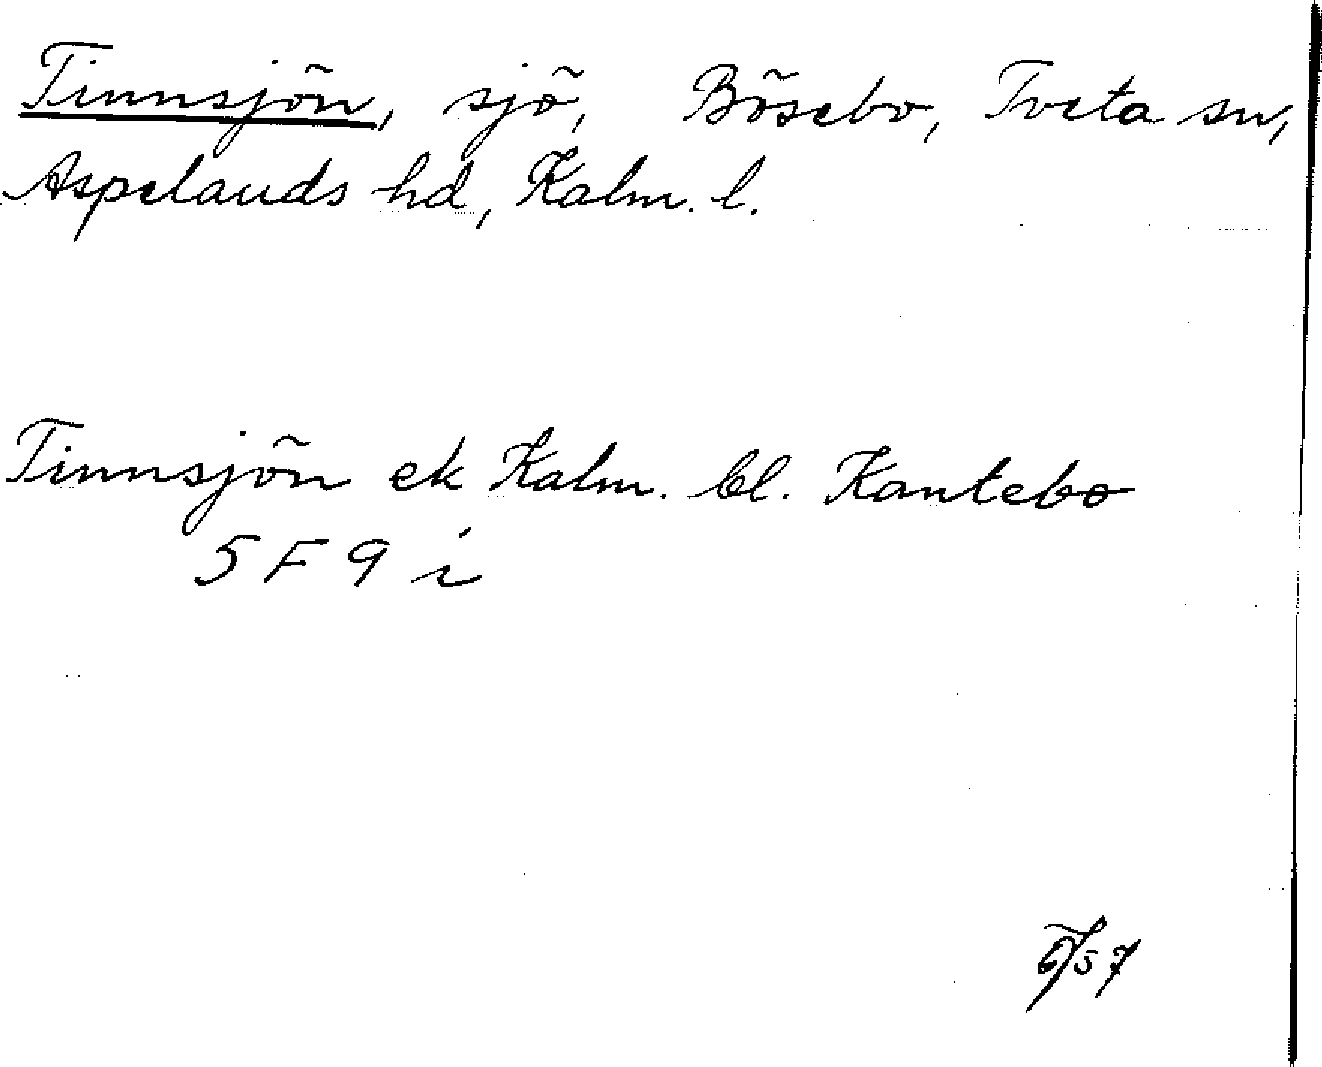 Tinnsjön, sjö, Bösebo, Tveta sn,
Aspelands hd, Kalm. l.
Tinnsjön ek Kalm. bl. Kantebo
5 F 9 i